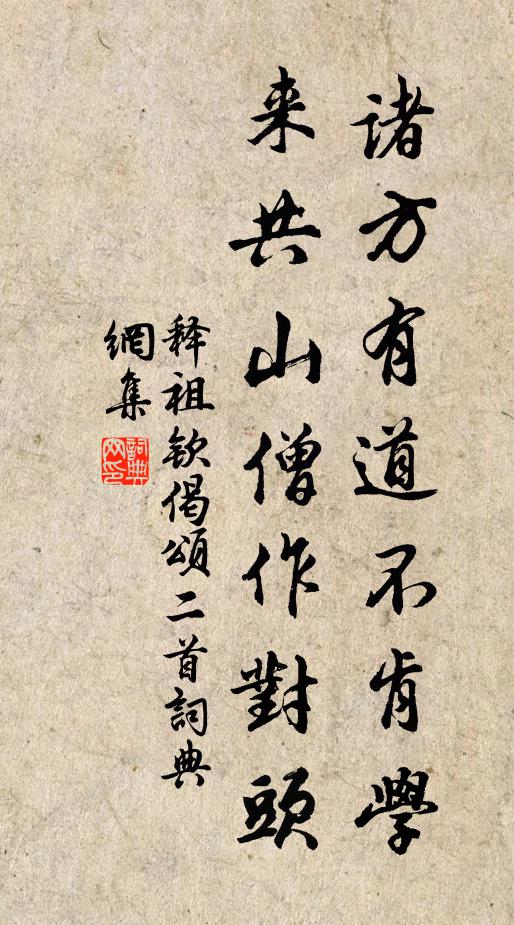 諸方有道不肯學
来共山僧作對頭
释祖欽偈頌二首詞典
網集
詞典网印